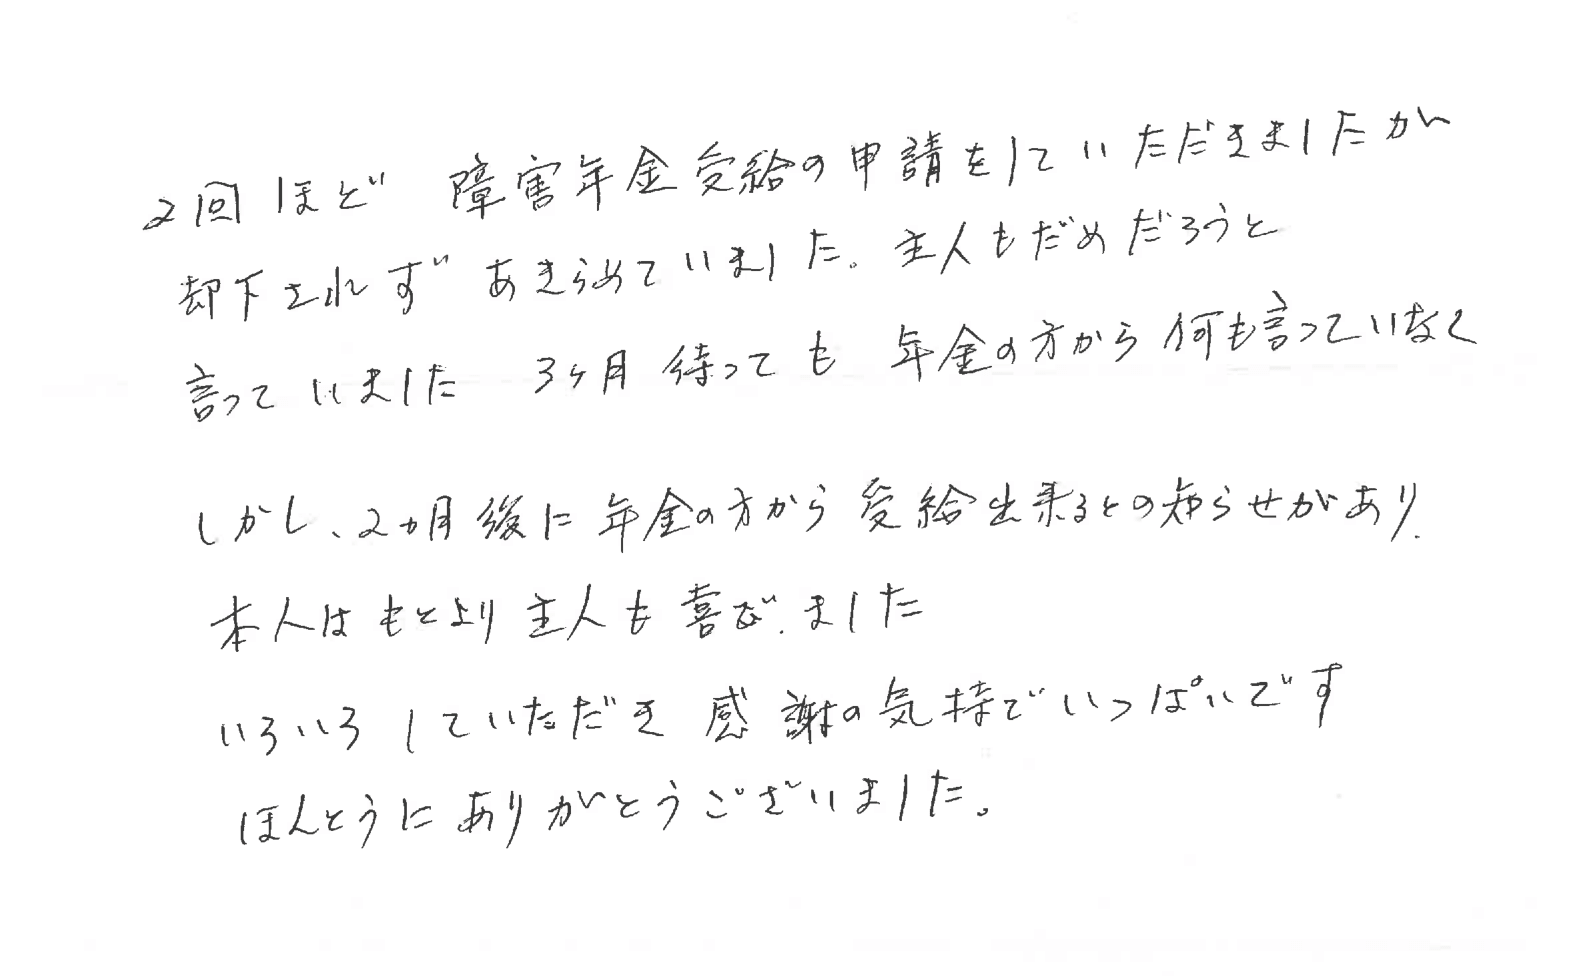 2回ほど 障害年金受給の申請をしていただきましたが
却下されず あきらめていました。主人もだめだろうと
言っていました 3ヶ月 待っても 年金の方から 何も言っていなく
しかし、2ヵ月後に年金の方から 受給出来るとの知らせがあり、
本人はもとより主人も喜びました
いろいろしていただき 感謝の気持でいっぱいです
ほんとうにありがとうございました。